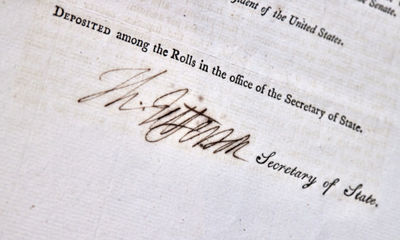 e Senate.
ident of the United States.
DEPOSITED among the Rolls in the office of the Secretary of State.
Th. Jefferson Secretary of State.